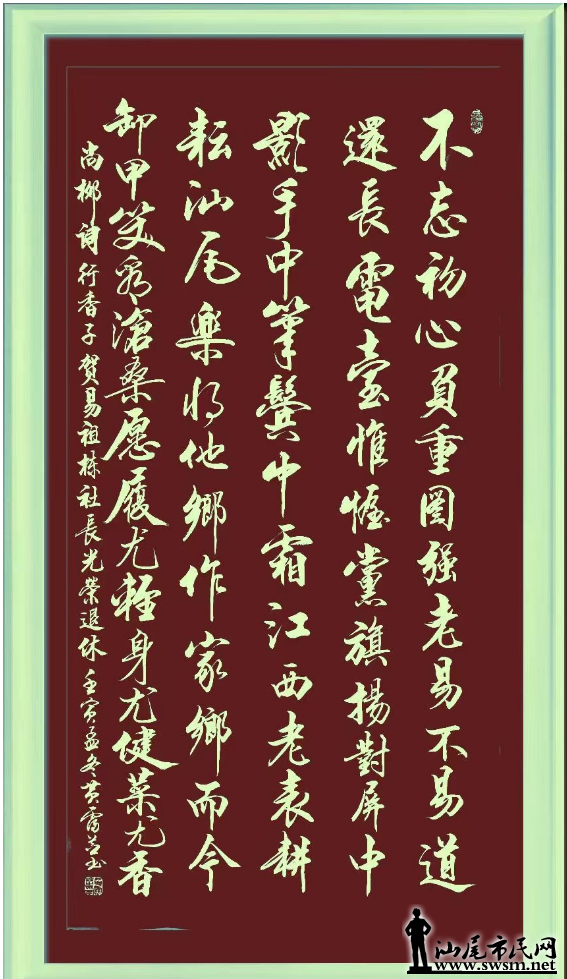 不忘初心負重圖强老易不易道
還長電臺帷幄黨旗揚對屏中
影手中筆鬓中霜江西老表耕
耘汕尾樂將他鄉作家鄉而今
卸甲笑看滄桑愿履尤輕身尤健菜尤香
尚柳词行香子賀易祖栋社長光榮退休 壬寅孟冬黄书
汕尾市民网
www.swsm.net